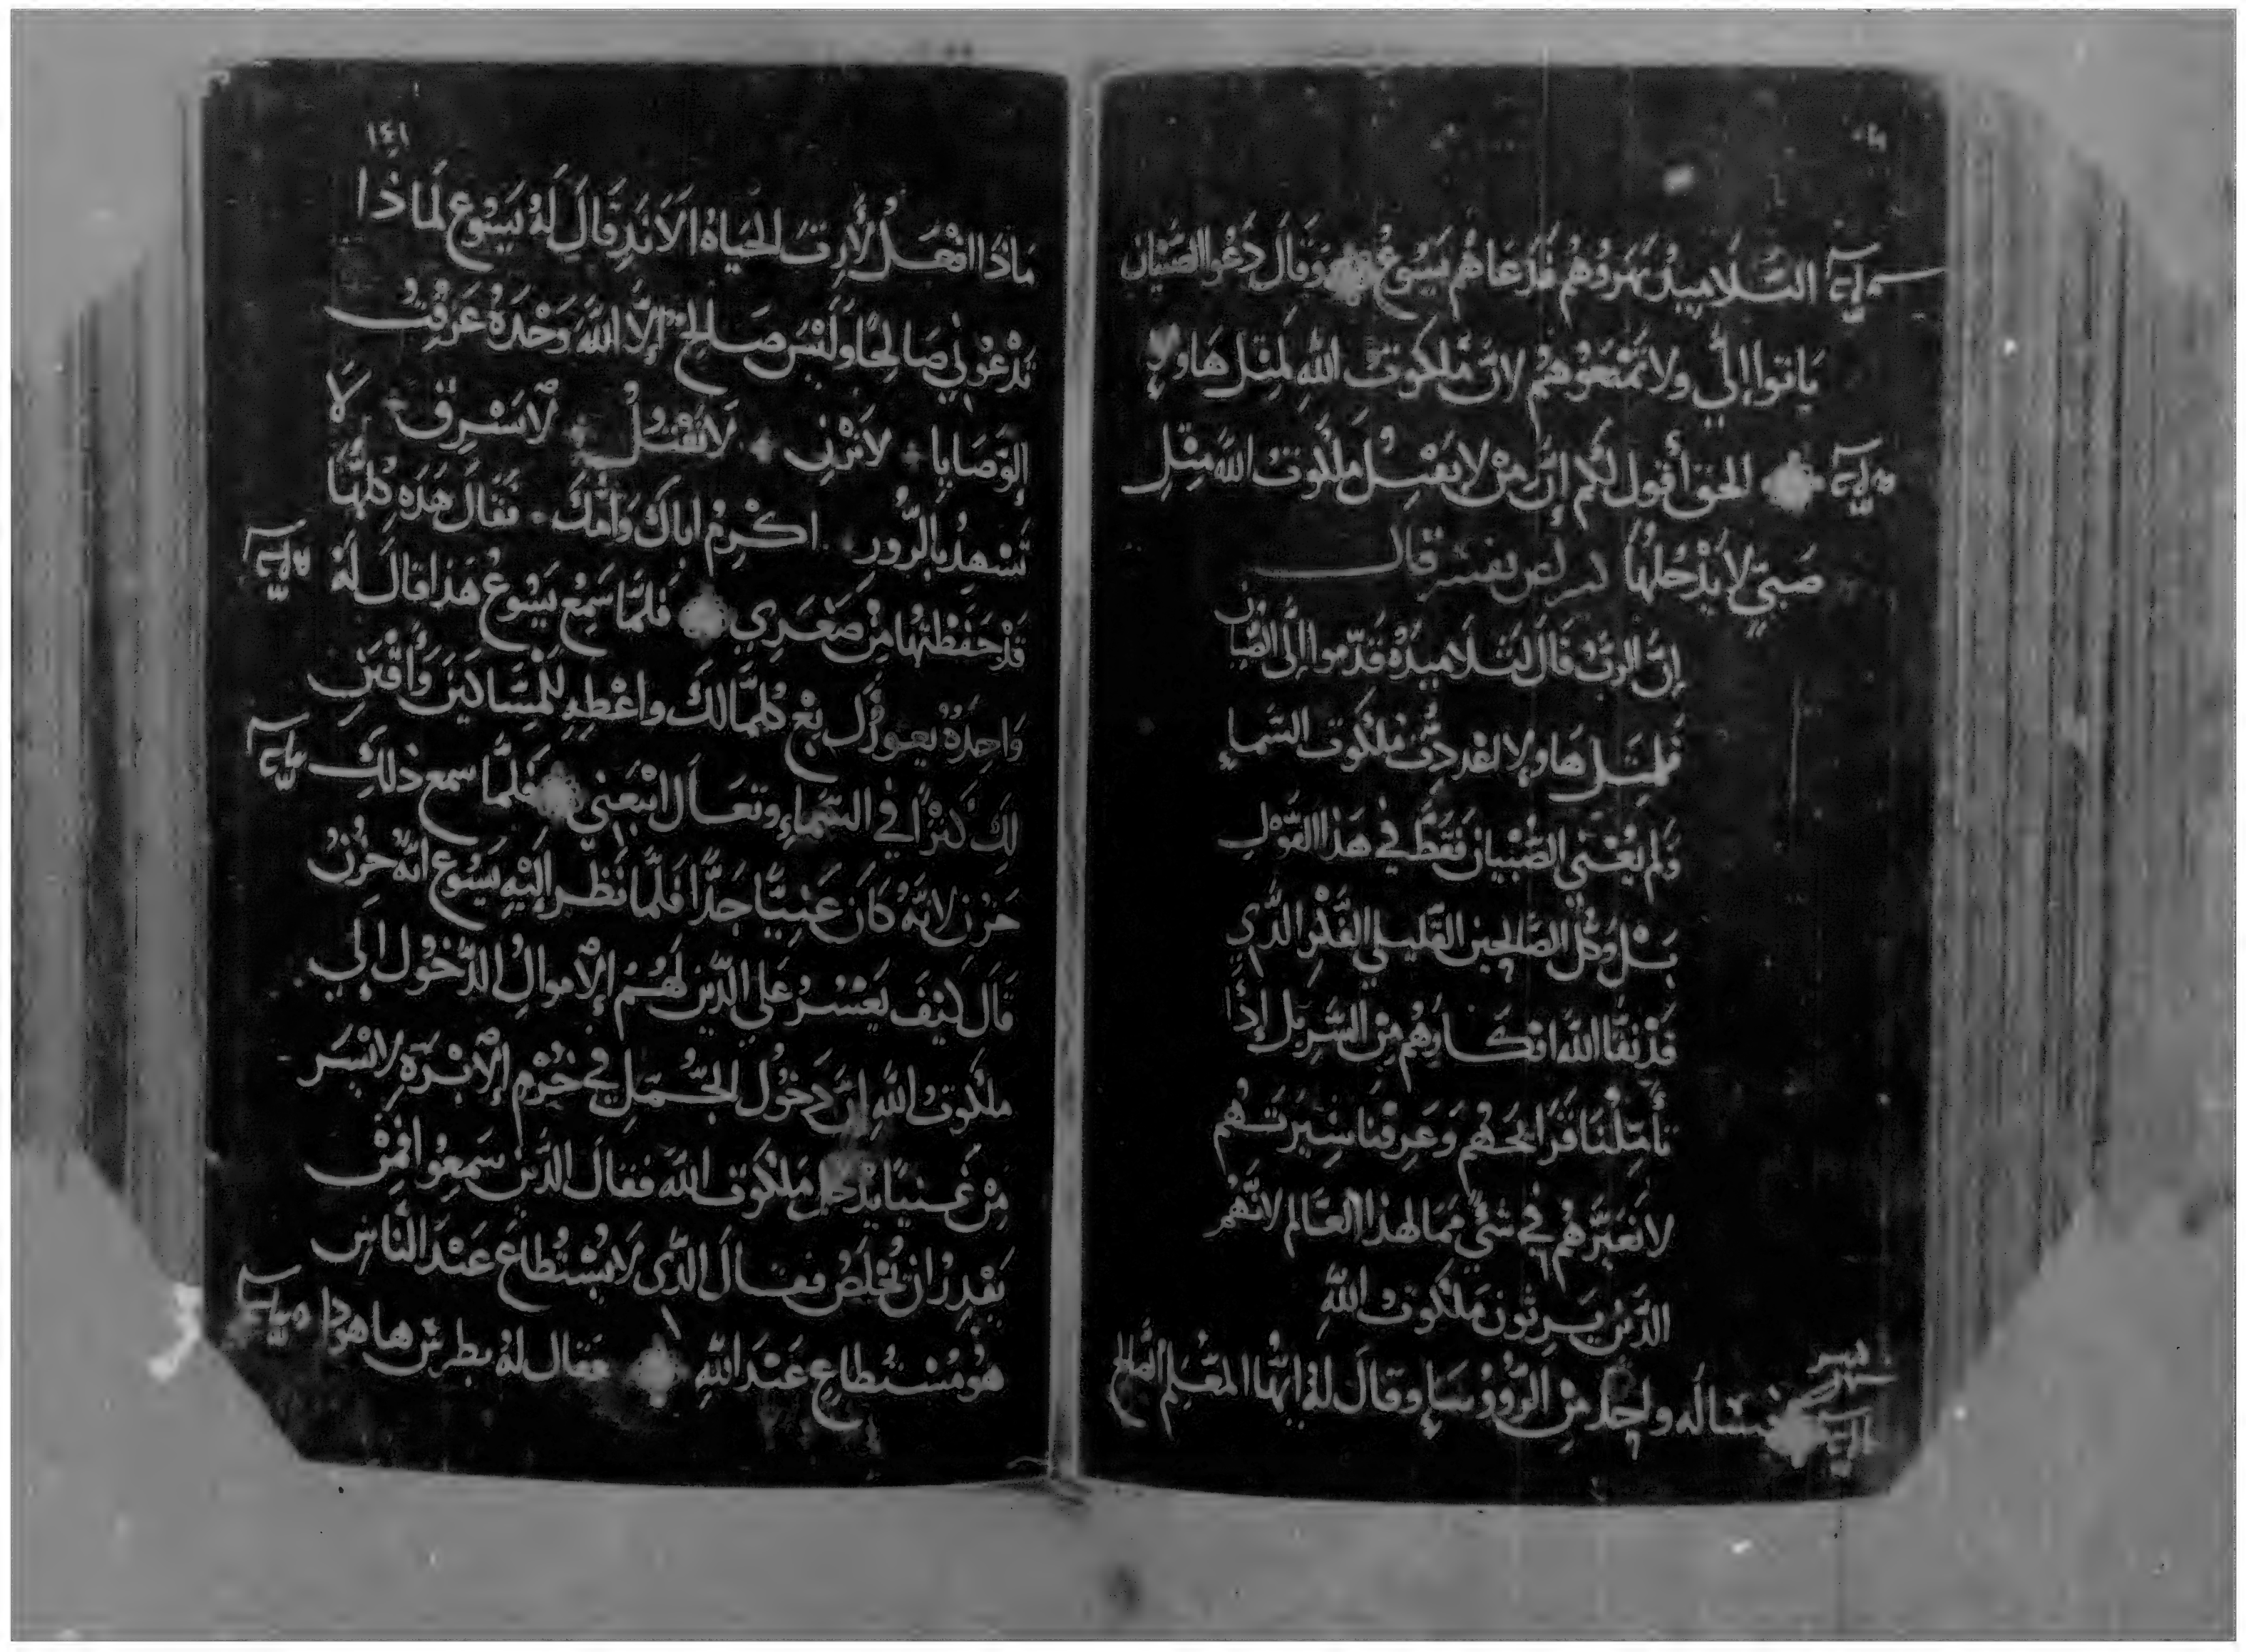 التلاميذ نهروهم فدعاهم يسوع وقال دعوا الصبيان
ياتوا إليّ ولا تمنعوهم لان ملكوت الله لمثل هاولا
الحق أقول لكم إن من لا يقبل ملكوت الله مثل
صبي لا يدخلها قال
إن الرب قال لتلاميذه قدموا إلى الصبيان
فلمثل هاولا ملكوت السماء
ولم يعني الصبيان فقط في هذا القول
بل وكل الصالحين القليلي الذي
قد نقا الله افكارهم من الشر بل إذا
تأملنا قرايحهم وعرفنا سيرتهم
لا نعيرهم في شيء مما لهذا العالم لانهم
الذين يرثون ملكوت الله
فسأله واحد من الروؤسا وقال له ايها المعلم الصالح
١٤١
ماذا افعل لأرث الحياة الابد قال له يسوع لماذا
تدعوني صالحا وليس صالح إلا الله وحده عرفت
الوصايا لا تزني لا تقتل لا تسرق لا
تشهد بالزور اكرم اباك وامك فقال هذه كلها
قد حفظتها من صغري فلما سمع يسوع هذا قال له
واحدة يعوزك بع كلما لك واعطه للمساكين واقتن
لك كنزا في السماء وتعال اتبعني فلما سمع ذلك
حزن لانه كان غنيا جدا فلما نظر اليه يسوع انه حزن
قال كيف يعسر على الذين لهم الأموال الدخول إلي
ملكوت الله إن دخول الجمل في خرم الأبرة لايسر
من غنيا يدخل ملكوت الله فقال الذين سمعوا فمن
يقدر ان يخلص فقال الذي لا يستطاع عند الناس
هو مستطاع عند الله فقال له بطرس ها هوذا